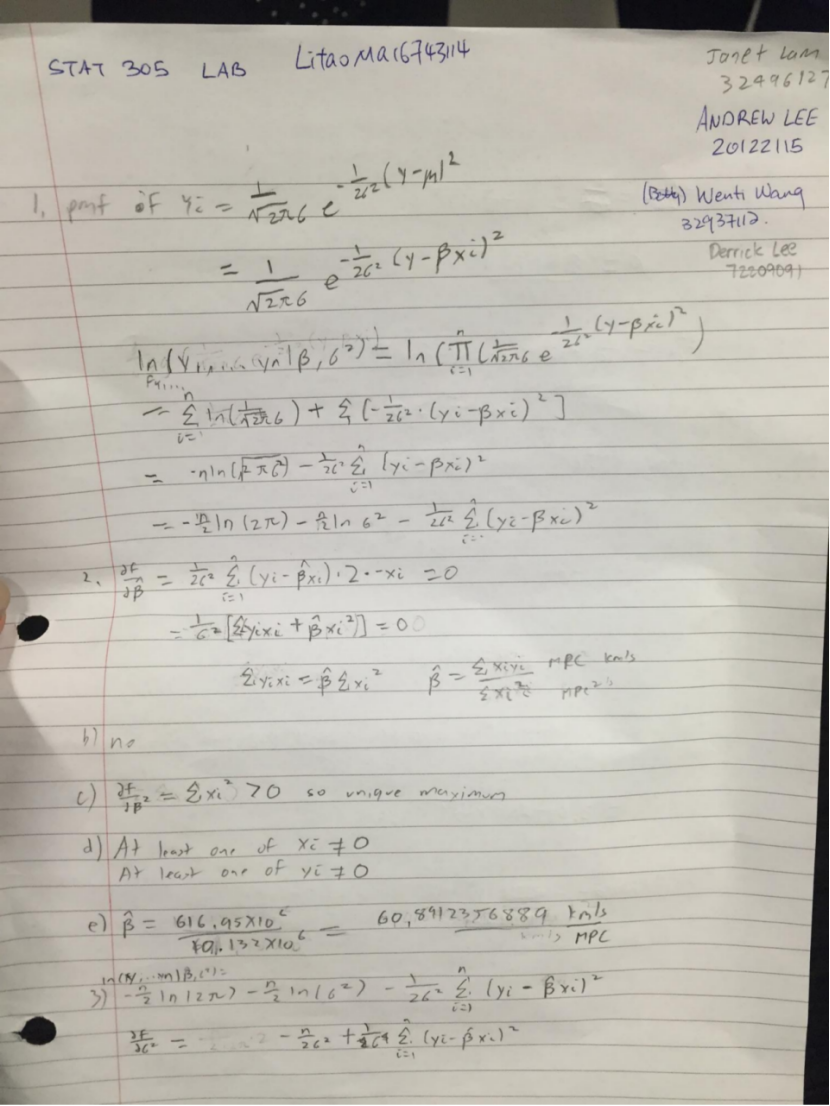 STAT 305 LAB Litao Ma 16743114
Janet Lam
32496127
ANDREW LEE
20122115
(Betty) Wenti Wang
32937112.
Derrick Lee
72209091
1. pmf of Yi = 1/√2π6 e^-1/26²(y-μ)²
= 1/√2π6 e^-1/26²(y-βxi)²
ln(Y1,...,yn|β,6²) = ln(∏ i=1 n (1/√2π6 e^-1/26²(y-βxi)²)
= Σ i=1 n ln(1/√2π6) + Σ[-1/26²·(yi-βxi)²]
= -nln(√2π6²) - 1/26² Σ i=1 n (yi-βxi)²
= -n/2 ln(2π) - n/2 ln 6² - 1/26² Σ i=1 n (yi-βxi)²
2. ∂f/∂β̂ = 1/26² Σ i=1 n (yi-β̂xi)·2·-xi = 0
= 1/6² [Σyixi + β̂xi²)] = 0
Σyixi = β̂Σxi² β̂ = Σxiyi/Σxi² MPC km/s / MPC²
b) no
c) ∂f/∂β² = Σxi² > 0 so unique maximum
d) At least one of xi ≠ 0
At least one of yi ≠ 0
e) β̂ = 616.95×10⁶/10.132×10⁶ = 60.8912356889 km/s / MPC
3) -n/2 ln(2π) - n/2 ln(6²) - 1/26² Σ i=1 n (yi - β̂xi)²
∂f/∂6² = -n/26² + 1/26⁴ Σ i=1 n (yi-β̂xi)²